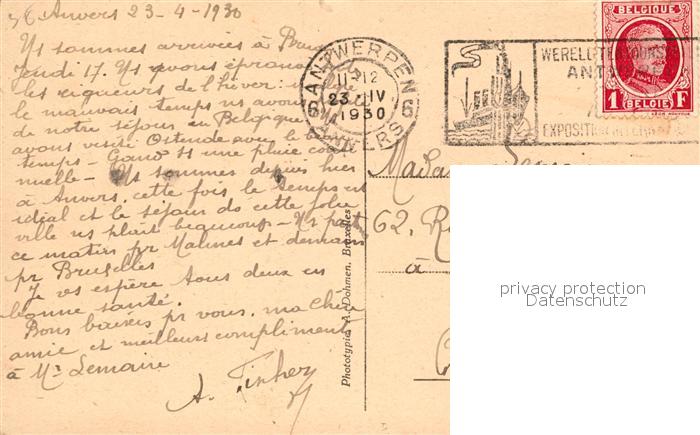 Anvers 23-4-1930
Ns sommes arrivées à
Jeudi 17. Ns avons
les rigueurs de l'hiver:
le mauvais temps ns avons
de notre séjour en Belgique
avons visité Ostende avec le
temps - Gand ss une pluie
nuelle - Ns sommes depuis hier
à Anvers, cette fois le temps est
idéal et le séjour ds cette jolie
ville ns plaît beaucoup - Ns
ce matin pr Malines et demain
pr Bruxelles
Je vs espère tous deux en
bonne santé.
Bons baisers pr vous, ma chère
amie et meilleurs compliments
à Mr Lemaire
A.
ANTWERPEN
11-12
23 IV
1930
ANVERS
6 6
WERELDTENTOONST
ANT
EXPOSITION
BELGIQUE
1 F
BELGIË
Madame
62, R
à
Phototypie A. Dohmen, Bruxelles
privacy protection
Datenschutz